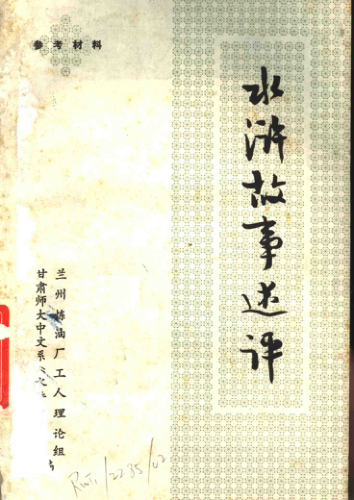 参考材料
水浒故事述评
兰州炼油厂工人理论组
甘肃师大中文系